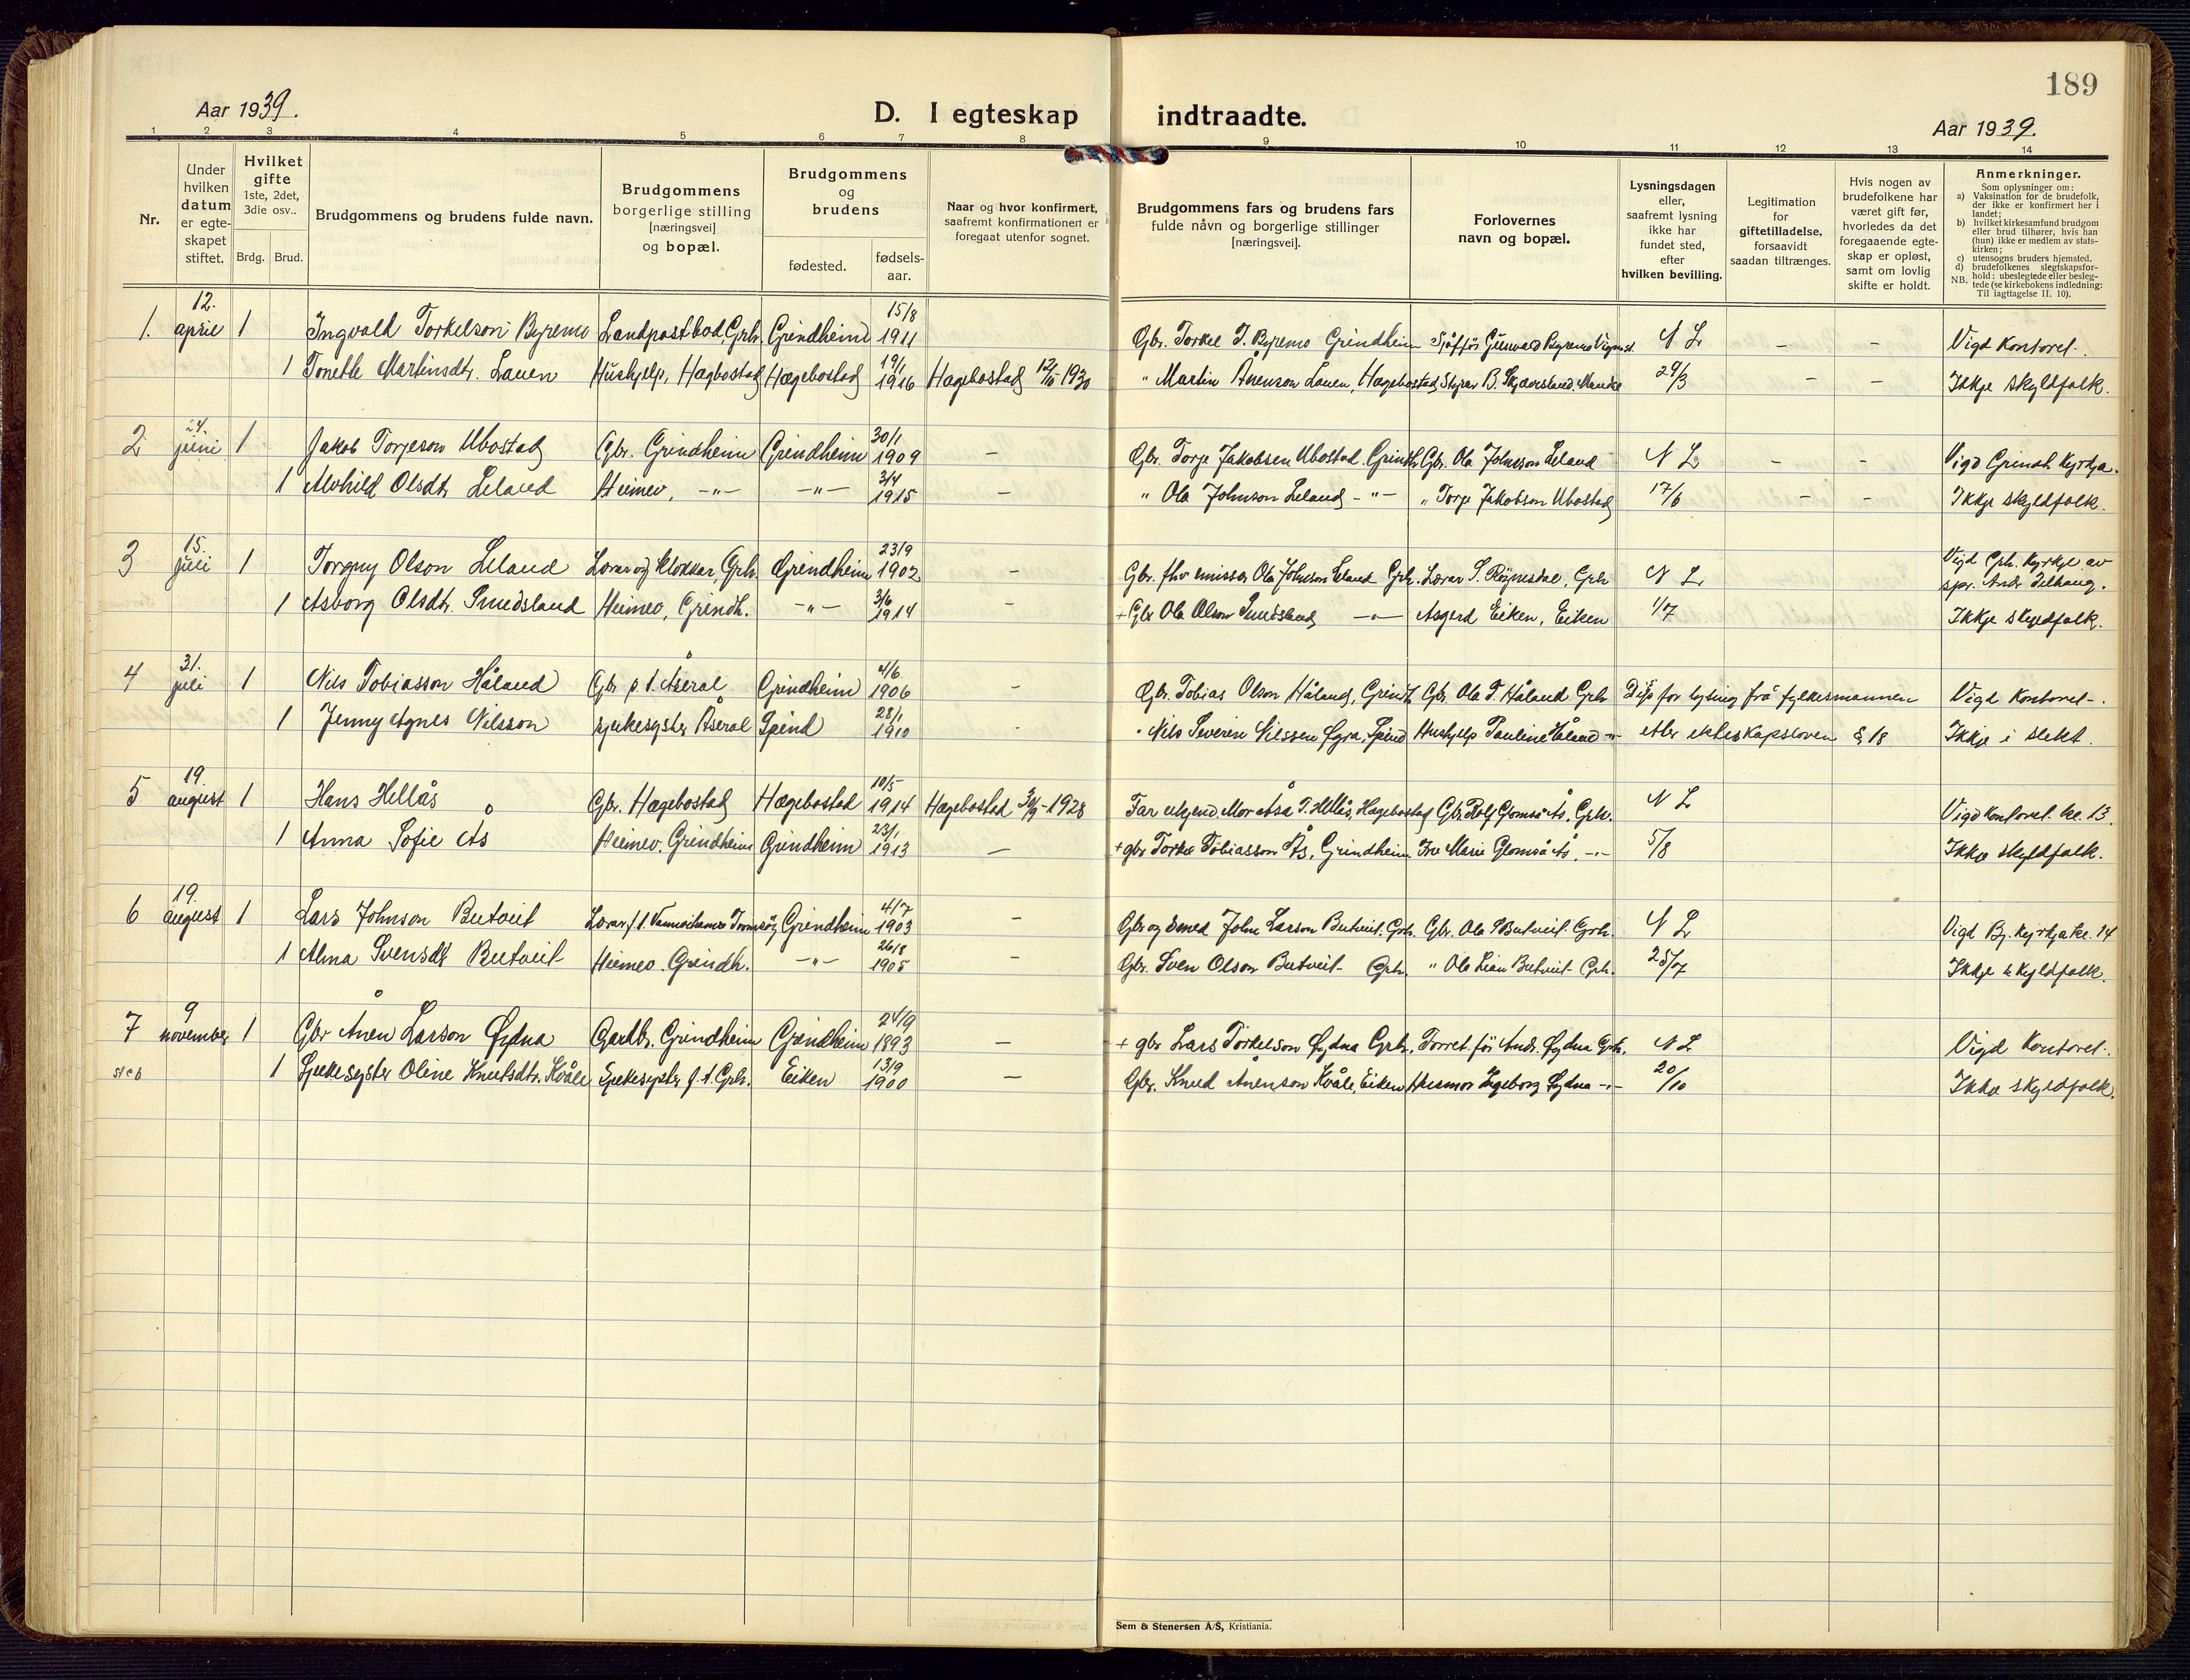 189
Aar 1939.
D. I egteskap indtraadte.
Aar 1939.
1 2 3 4 5 6 7 8 9 10 11 12 13 14
Nr.
Under hvilken datum er egte-skapet stiftet.
Hvilket gifte 1ste, 2det, 3die osv..
Brdg. Brud.
Brudgommens og brudens fulde navn.
Brudgommens borgerlige stilling [næringsvei] og bopæl.
Brudgommens og brudens
fødested.
fødsels-aar.
Naar og hvor konfirmert, saafremt konfirmationen er foregaat utenfor sognet.
Brudgommens fars og brudens fars fulde navn og borgerlige stillinger [næringsvei].
Forlovernes navn og bopæl.
Lysningsdagen eller, saafremt lysning ikke har fundet sted, efter hvilken bevilling.
Legitimation for giftetilladelse, forsaavidt saadan tiltrænges.
Hvis nogen av brudefolkene har været gift før, hvorledes da det foregaaende egte-skap er opløst, samt om lovlig skifte er holdt.
Anmerkninger.
Som oplysninger om:
a) Vaksination for de brudefolk, der ikke er konfirmert her i landet;
b) hvilket kirkesamfund brudgom eller brud tilhører, hvis han (hun) ikke er medlem av stats-kirken;
c) utensogns bruders hjemsted.
d) brudefolkenes slegtskapsfor-hold: ubeslegtede eller besleg-tede (se kirkebokens indledning: Til iagttagelse II. 10).
NB.
1. 12. april 1 Ingvald Torkelson Byremo Landpostbod, Grh. Grindheim 15/8 1911 Gbr. Torkel T. Byremo Grindheim Sjåfør Gunvald Byremo N L – – Vigd Kontoret.
1 Tonette Martinsdtr. Lauen Hushjelp, Hægbostad Hægebostad 19/1 1916 Hægebostad 12/10 1930 " Martin Ånenson Lauen, Hægebostad Styrar B. Skjævesland, Mandal 29/3 – – Ikkje skyldfolk.
2 24. juni 1 Jakob Torjeson Ubostad Gbr. Grindheim Grindheim 30/1 1909 – Gbr. Torje Jakobsen Ubostad. Grindh. Gbr. Ola Johnson Leland N L – – Vigd Grindh. Kyrkja.
1 Alvhild Olsdtr. Leland Heimev, –"– –"– 3/4 1915 – " Ola Johnson Leland –"– " Torje Jakobson Ubostad 17/6 – – Ikkje skyldfolk.
3 15. juli 1 Torguy Olson Leland Lærar og klokkar, Grh. Grindheim 23/9 1902 – Gbr. fhv emissær Ola Johnson Leland Grh. Lærar S. Røynesdal, Grh N L Vigd Grh. Kyrkje av spr. Andr
1 Asborg Olsdtr. Smedsland Heimev, Grindh. –"– 3/6 1914 – + Gbr Ola Olson Smedsland –"– Asgerd Eiken, Eiken 1/7 Ikkje skyldfolk.
4 31. juli 1 Nils Tobiasson Håland Gbr p. t. Åseral Grindheim 4/6 1906 – Gbr. Tobias Olson Håland, Grindh Gbr. Ola T. Håland Grh Disp for lysing frå fylkesmannen Vigd Kontoret.
1 Jenny Agnes Nilsson sjukesyster Åseral Spind 28/1 1910 – " Nils Severin Nilssen Øyra, Spind Hushjelp Pauline Håland –"– etter ekteskapsloven § 18 Ikkje i slekt.
5 19. august 1 Hans Hellås Gbr. Hægebostad Hægebostad 10/5 1914 Hægebostad 30/9 – 1928 Far ukjend. Mor Åsa T. Hellås, Hægebostad Gbr Rolf Glomså Ås, Grh. N L Vigd Kontoret. kl. 13.
1 Anna Sofie Ås Heimev. Grindheim Grindheim 23/1 1913 – + gbr Torkel Tobiasson Ås, Grindheim Fru Marie Glomså Ås, –"– 5/8 Ikkje skyldfolk.
6 19. august 1 Lars Johnson Butveit Lærar p.t. Grindheim 4/7 1903 – Gbr og smed John Larson Butveit. Grh. Gbr. Ola S Butveit Grh. N L Vigd By. kyrkja kl. 14
1 Alma Svensdtr Butveit Heimev. Grindh. –"– 26/8 1905 – Gbr. Sven Olson Butveit Grh. " Ola Butveit Grh. 23/7 Ikkje skyldfolk.
7 9 november 1 Gbr Ånen Larson Øydna Gardbr. Grindheim Grindheim 24/9 1893 – + gbr Lars Torkelson Øydna Grh. Andr. Øydna Grh. N L Vigd Kontoret.
1 Sjukesyster Oline Knutsdtr. Kvåle Sjukesyster p.t. Grh. Eiken 13/9 1900 – Gbr. Knud Ånenson Kvåle, Eiken Husmor Ingeborg Øydna –"– 20/10 Ikkje skyldfolk.
Sem & Stenersen A/S, Kristiania.